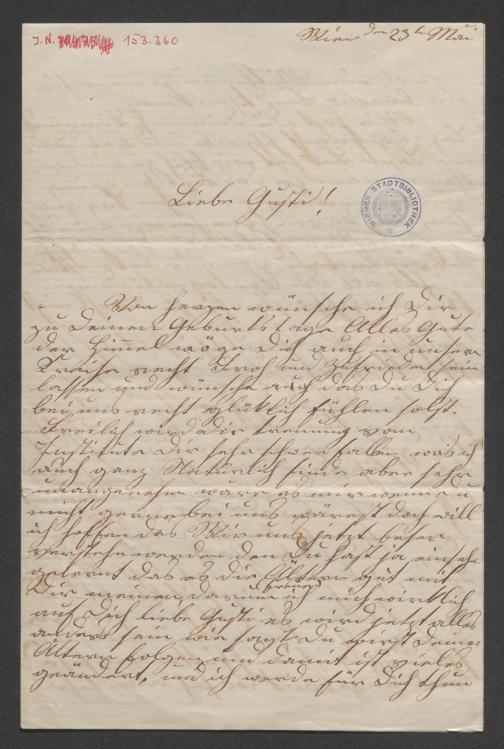 J. N. 153.360
Wien den 23t Mai
Liebe Gusti!
WIENER STADTBIBLIOTHEK
Von herzen wünsche ich Dir
zu Deinem Geburtstage Alles Gute
der Himmel möge Dich auch in unsern
Kreise recht Froh und zufrieden sein
lassen und wünsche auch das Du Dich
bei uns recht glücklich fühlen solst.
Freilich wird dir die trennung vom
Institute Dir sehr schwer fallen was ich
auch ganz Natürlich finde aber sehr
unangenehm wäre es mir wenn Du
nicht gerne bei uns wärest doch will
ich hoffen das Wir uns jetzt besser
verstehn werden den Du hast ja einsehn
gelernt das es die Ältern gut mit
Dir meinen darum ich mich wirklich
auf Dich liebe Gusti es wird jetzt alles
anders sein wie sagst Du wirst deinen
Ältern folgen und damit ist vieles
geändert, und ich werde für Dich thun